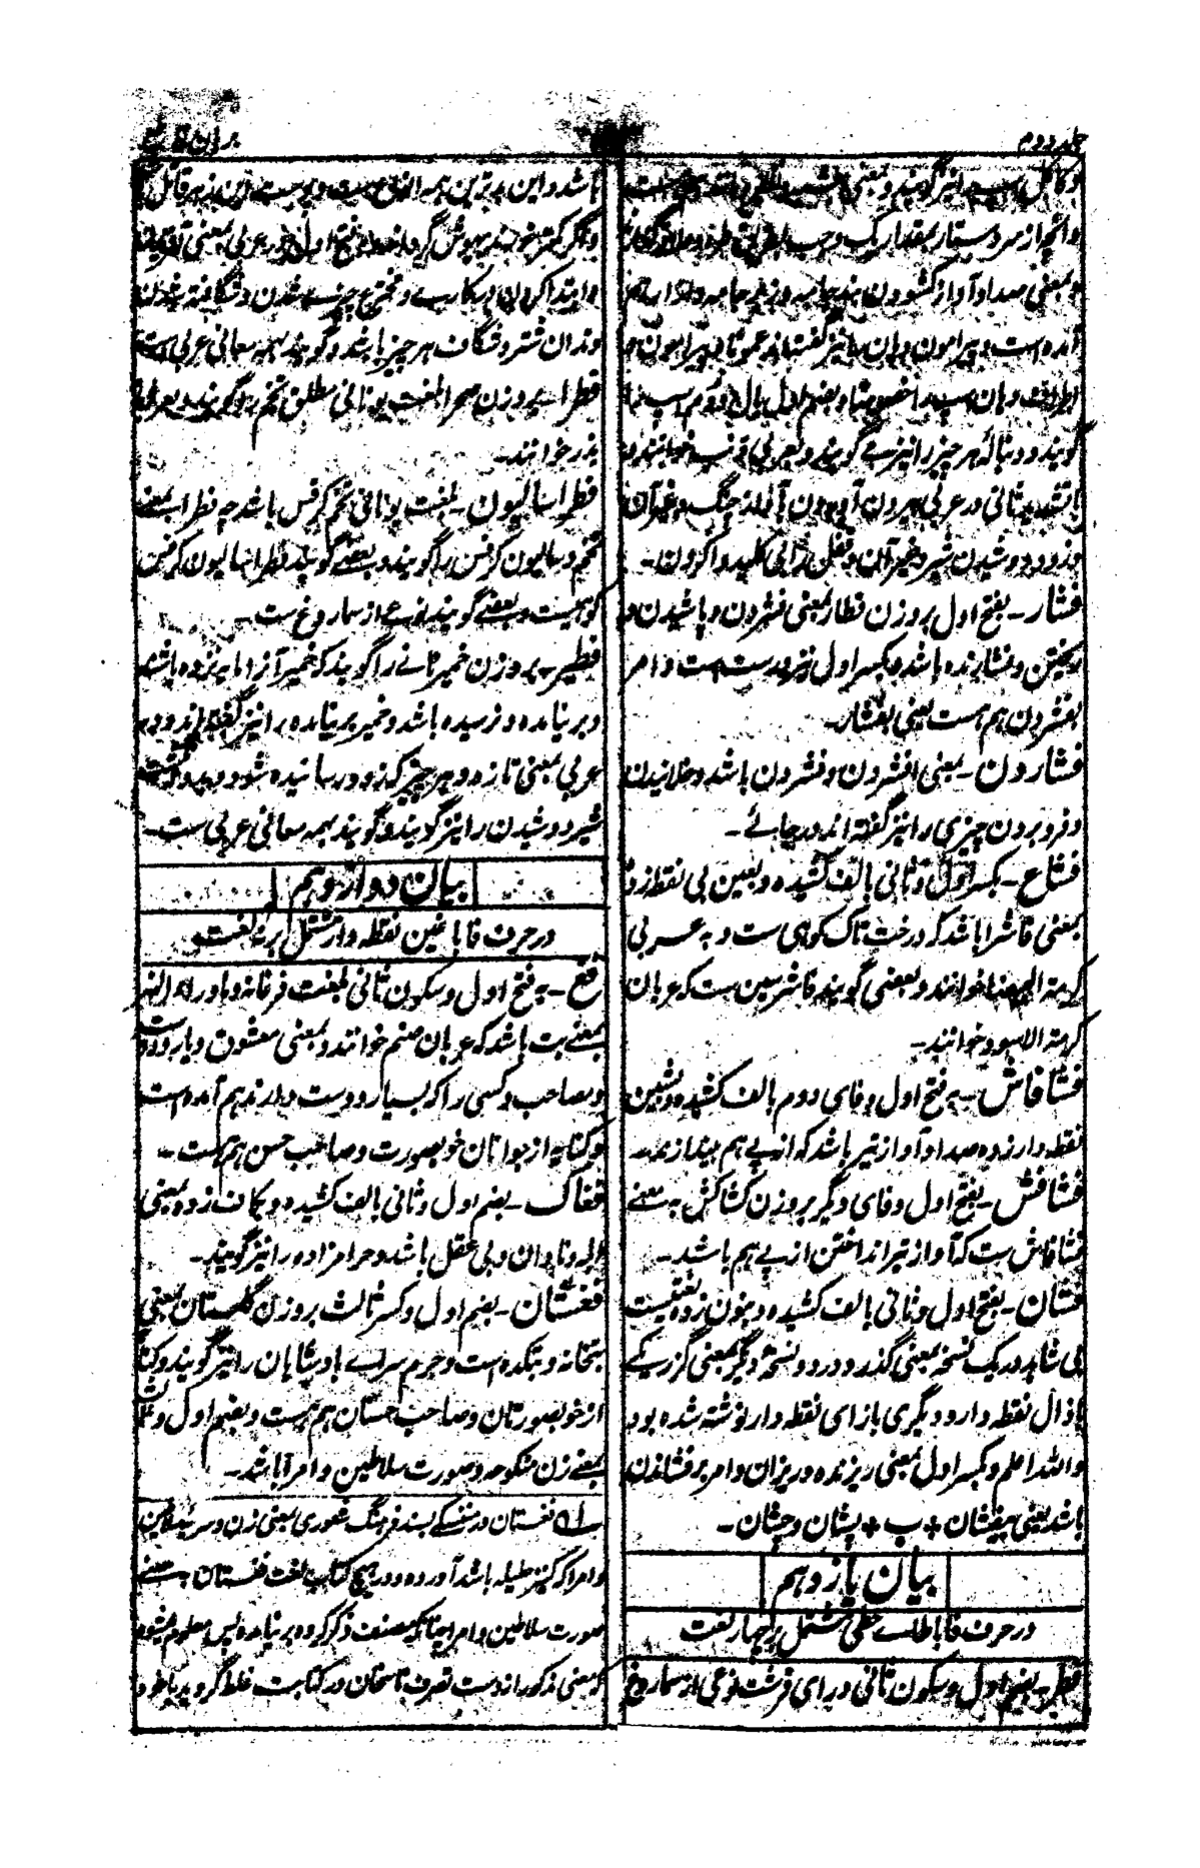 جلد دوم
برهان قاطع
و کاکل اسپ را نیز گویند و بمعنی
و آنچه از سر دستار بمقدار یک وجب بطریق طره و علاقه گذارند
و بمعنی صدا و آواز کشودن بند جامه و زیر جامه و ازار هم
آمده است و پیرامون دهان را نیز گفته‌اند عموماً و پیرامون و
اطراف دهان اسپ را خصوصاً و بضم اول یال و دم اسپ را
گویند و دنباله هر چیز را نیز گویند و بعربی ذنب خوانند و
با تشدید ثانی در عربی بیرون آوردن آروغ از خیک و غیر آن
و زود دوشیدن شیر و غیر آن و قفل را بی کلید وا کردن۔
فشار۔ بفتح اول بروزن قطار بمعنی فشردن و پاشیدن و
ریختن و فشارنده باشد و بکسر اول نیز درست است و امر
بفشردن هم هست یعنی بفشار۔
فشاردن۔ بمعنی افشردن و فشردن باشد و خلانیدن
و فرو بردن چیزی را نیز گفته اند در جائے۔
فشاع۔ بکسر اول و ثانی بالف کشیده و بعین بی نقطه زده
بمعنی فاشرا باشد که درخت تاک کوهی ست و به عربی
کرمة البیضا خوانند و بعضی گویند فاشرسین ست که عربان
کرمة الاسود خوانند۔
فشافاش۔ به فتح اول و فای دوم بالف کشیده و بشین
نقطه دار زده صدا و آواز تیر باشد که از پے هم بیندازند۔
فشافش۔ بفتح اول و فای دیگر بروزن کشاکش به معنے
فشافاش ست که آواز تیر انداختن از پے هم باشد۔
فشان۔ بفتح اول و ثانی بالف کشیده و بنون زده لغتیست
بی شاهد در یک نسخه بمعنی گذر و در دو نسخهٔ دیگر بمعنی گزر یکے
با ذال نقطه دار و دیگری با زای نقطه دار نوشته شده بود
والله اعلم و بکسر اول بمعنی ریزنده و ریزان و امر بر فشاندن
باشد یعنی بیفشان + ب + پشان و چشان۔
بیان یازدهم
در حرف فا با طاے حطی مشتمل بر چهار لغت
فطر۔ بضم اول و سکون ثانی و رای قرشت نوعی از سماروغ
باشد و این بدترین همه انواع ست
و اگر کمتر خورند بیهوش گرداند و بفتح اول در عربی بمعنی آفریدن
و ابتدا کردن در کارے و مخترع چیزے شدن و شگافته شدن
دندان شتر و شگاف هر چیز باشد و گویند بهمه معانی عربی است
فطرا۔ بروزن صحرا بلغت یونانی مطلق تخم را گویند و بعربی
بذر خوانند۔
فطراسالیون۔ بلغت یونانی تخم کرفس باشد چه فطرا بمعنے
تخم و سالیون کرفس را گویند و بعضے گویند فطراسالیون کرفس
کوهیست و بعضے گویند نوعے از سماروغ ست۔
فطیر۔ بروزن خمیر نانے را گویند که خمیر آنرا مایه نزده باشند
و بر نیامده و نرسیده باشد و خمیر بر نیامده را نیز گفته‌اند و در
عربی بمعنی تازه و هر چیز که زود رسانیده شود
شیر دوشیدن را نیز گویند و گویند بهمه معانی عربی ست۔
بیان دوازدهم
در حرف فا با غین نقطه دار مشتمل بر نه لغت
فغ۔ به فتح اول و سکون ثانی بلغت فرغانه و ماوراء النهر
بمعنے بت باشد که عربان صنم خوانند و بمعنی معشوق و یار و دوست
و مصاحب و کسی را که بسیار دوست دارند هم آمده است
و کنایه از جوانان خوبصورت و صاحب حسن هم هست۔
فغاک۔ بضم اول و ثانی بالف کشیده و بکاف زده بمعنی
ابله و نادان و بی عقل باشد و حرامزاده را نیز گویند۔
فغستان۔ بضم اول و کسر ثالث بروزن گلستان بمعنی
بتخانه و بتکده است و حرم سراے پادشاهان را نیز گویند و کنایه
از خوبصورتان و صاحب حسنان هم هست و بضم اول و ثالث
بمعنے زن منکوحه و صورت سلاطین و امرا باشد۔
فغستان در منسکے بسند فرهنگ غفوری بمعنی زن و سریه سلاطین
و امرا که کنیز حلیله باشد آورده و در هیچ کتاب لغت فغستان بمعنے
صورت سلاطین و امرا چنانکه مصنف ذکر کرده بر نیامده پس معلوم میشود
که معنی مذکور از دست تصرف ناسخان در کتابت غلط گردیده